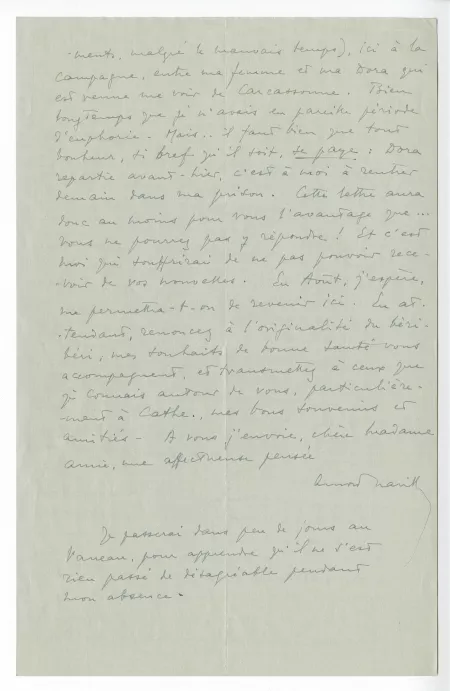 -ments, malgré le mauvais temps), ici à la
campagne, entre ma femme et ma Dora qui
est venue me voir de Carcassonne. Bien
longtemps que je n'avais eu pareille période
d'euphorie. Mais.. il faut bien que tout
bonheur, si bref qu'il soit, se paye : Dora
repartie avant-hier, c'est à moi à rentrer
demain dans ma prison. Cette lettre aura
donc au moins pour vous l'avantage que...
vous ne pourrez pas y répondre ! Et c'est
moi qui souffrirai de ne pas pouvoir rece-
-voir de vos nouvelles. En Août, j'espère,
me permettra-t-on de revenir ici. En at-
-tendant, renoncez à l'originalité du béri-
béri, mes souhaits de bonne santé vous
accompagnent, et transmettez à ceux que
je connais autour de vous, particulière-
-ment à Cathe., mes bons souvenirs et
amitiés - A vous j'envoie, chère Madame
amie, une affectueuse pensée
Je passerai dans peu de jours au
Vaneau, pour apprendre qu'il ne s'est
rien passé de désagréable pendant
mon absence.